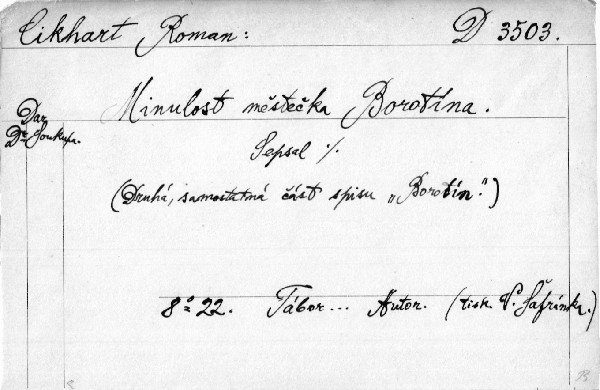 Cikhart Roman: D 3503.
Minulost městečka Borotína.
Dar
Dr Soukupa.
Sepsal %.
(Druhá, samostatná část spisu „Borotín“.)
8° 22. Tábor... Autor. (tisk. V. Šafránka.)